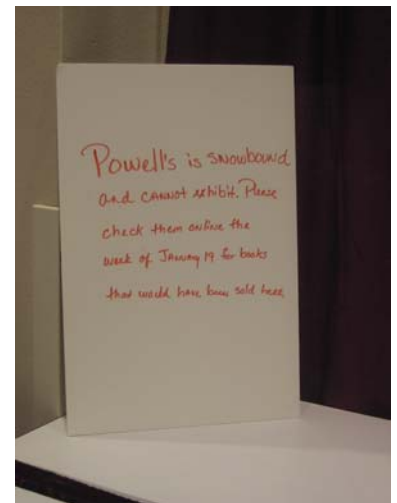 Powell's is snowbound
and cannot exhibit. Please
check them online the
week of January 19 for books
that would have been sold here.